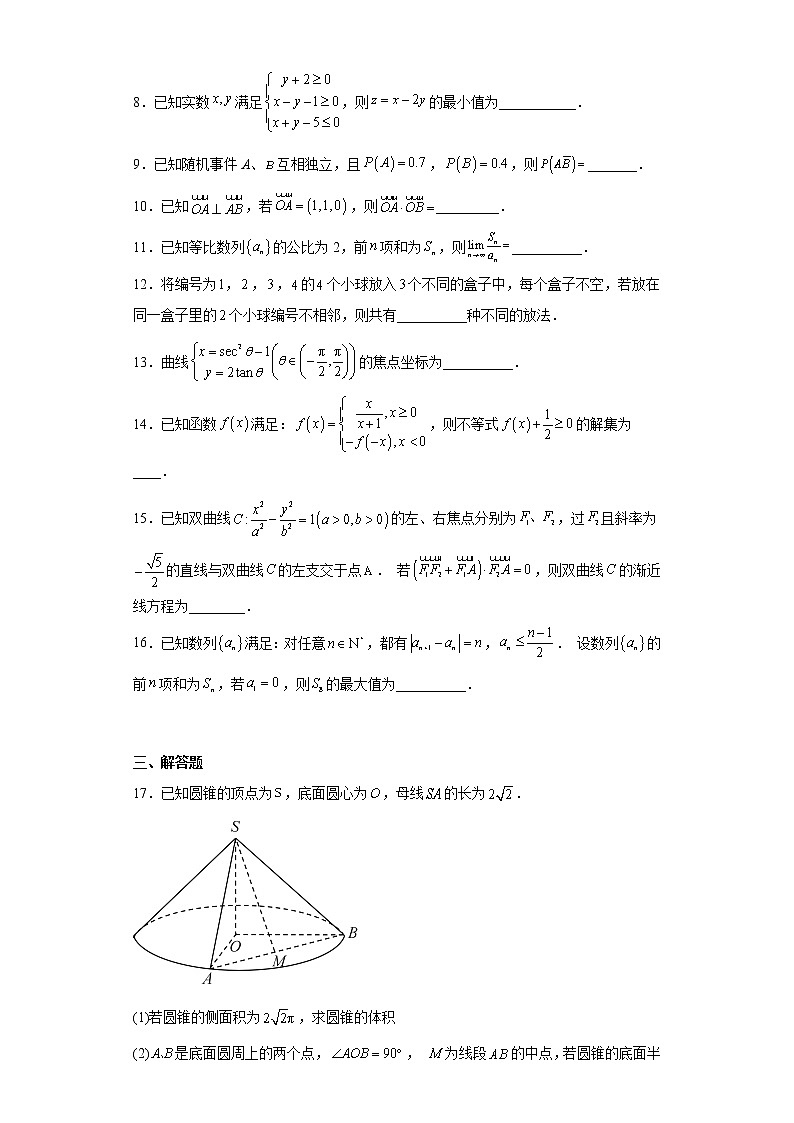 8．已知实数 x, y 满足 { y + 2 ≥ 0, x − y − 1 ≥ 0, x + y − 5 ≤ 0 ，则 z = x − 2y 的最小值为___________．
9．已知随机事件 A、B 互相独立，且 P(A) = 0.7 ， P(B) = 0.4 ，则 P(AB̅) = _______．
10．已知 OA ⊥ AB ，若 OA = (1,1,0) ，则 OA · OB = _________．
11．已知等比数列{aₙ}的公比为 2，前 n 项和为 Sₙ ，则 lim n→∞ Sₙ/aₙ = __________．
12．将编号为 1，2，3，4 的 4 个小球放入 3 个不同的盒子中，每个盒子不空，若放在
同一盒子里的 2 个小球编号不相邻，则共有__________种不同的放法．
13．曲线 { x = sec² θ − 1, y = 2 tan θ (θ ∈ (−π/2, π/2)) 的焦点坐标为__________．
14．已知函数 f(x) 满足： f(x) = { x/(x+1), x ≥ 0; −f(−x), x < 0 ，则不等式 f(x) + 1/2 ≥ 0 的解集为
____．
15．已知双曲线 C : x²/a² − y²/b² = 1(a > 0, b > 0) 的左、右焦点分别为 F₁、F₂ ，过 F₂ 且斜率为
−√5/2 的直线与双曲线 C 的左支交于点 A ． 若 (F₁F₂ + F₁A) · F₂A = 0 ，则双曲线 C 的渐近
线方程为________．
16．已知数列{aₙ}满足：对任意 n ∈ N* ，都有 |aₙ₊₁ − aₙ| = n ， aₙ ≤ (n−1)/2 ． 设数列{aₙ}的
前 n 项和为 Sₙ ，若 a₁ = 0 ，则 S₈ 的最大值为__________．
三、解答题
17．已知圆锥的顶点为 S ，底面圆心为 O ，母线 SA 的长为 2√2 ．
S
O
B
M
A
(1)若圆锥的侧面积为 2√2π ，求圆锥的体积
(2) A,B 是底面圆周上的两个点， ∠AOB = 90° ， M 为线段 AB 的中点，若圆锥的底面半